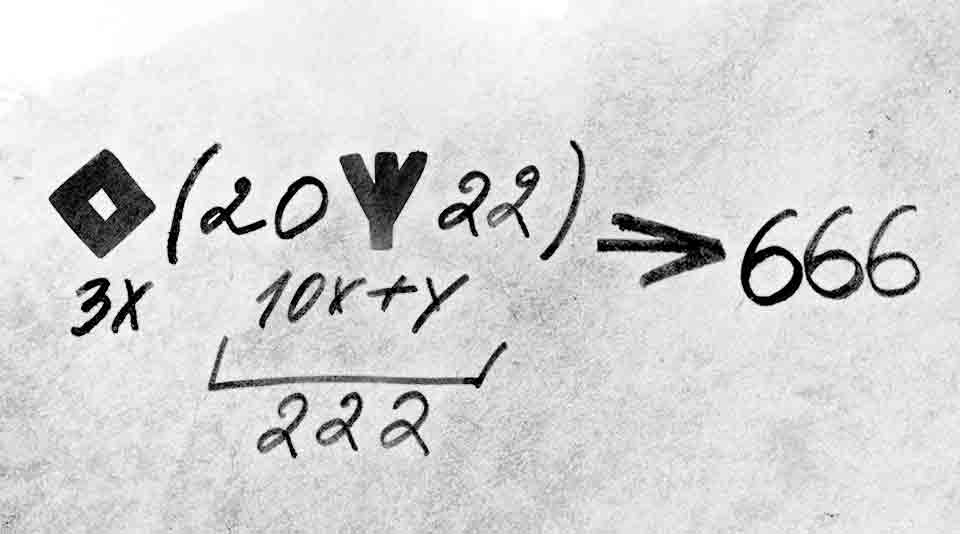 ◈(20 Y 22) → 666
3x 10x+y
222